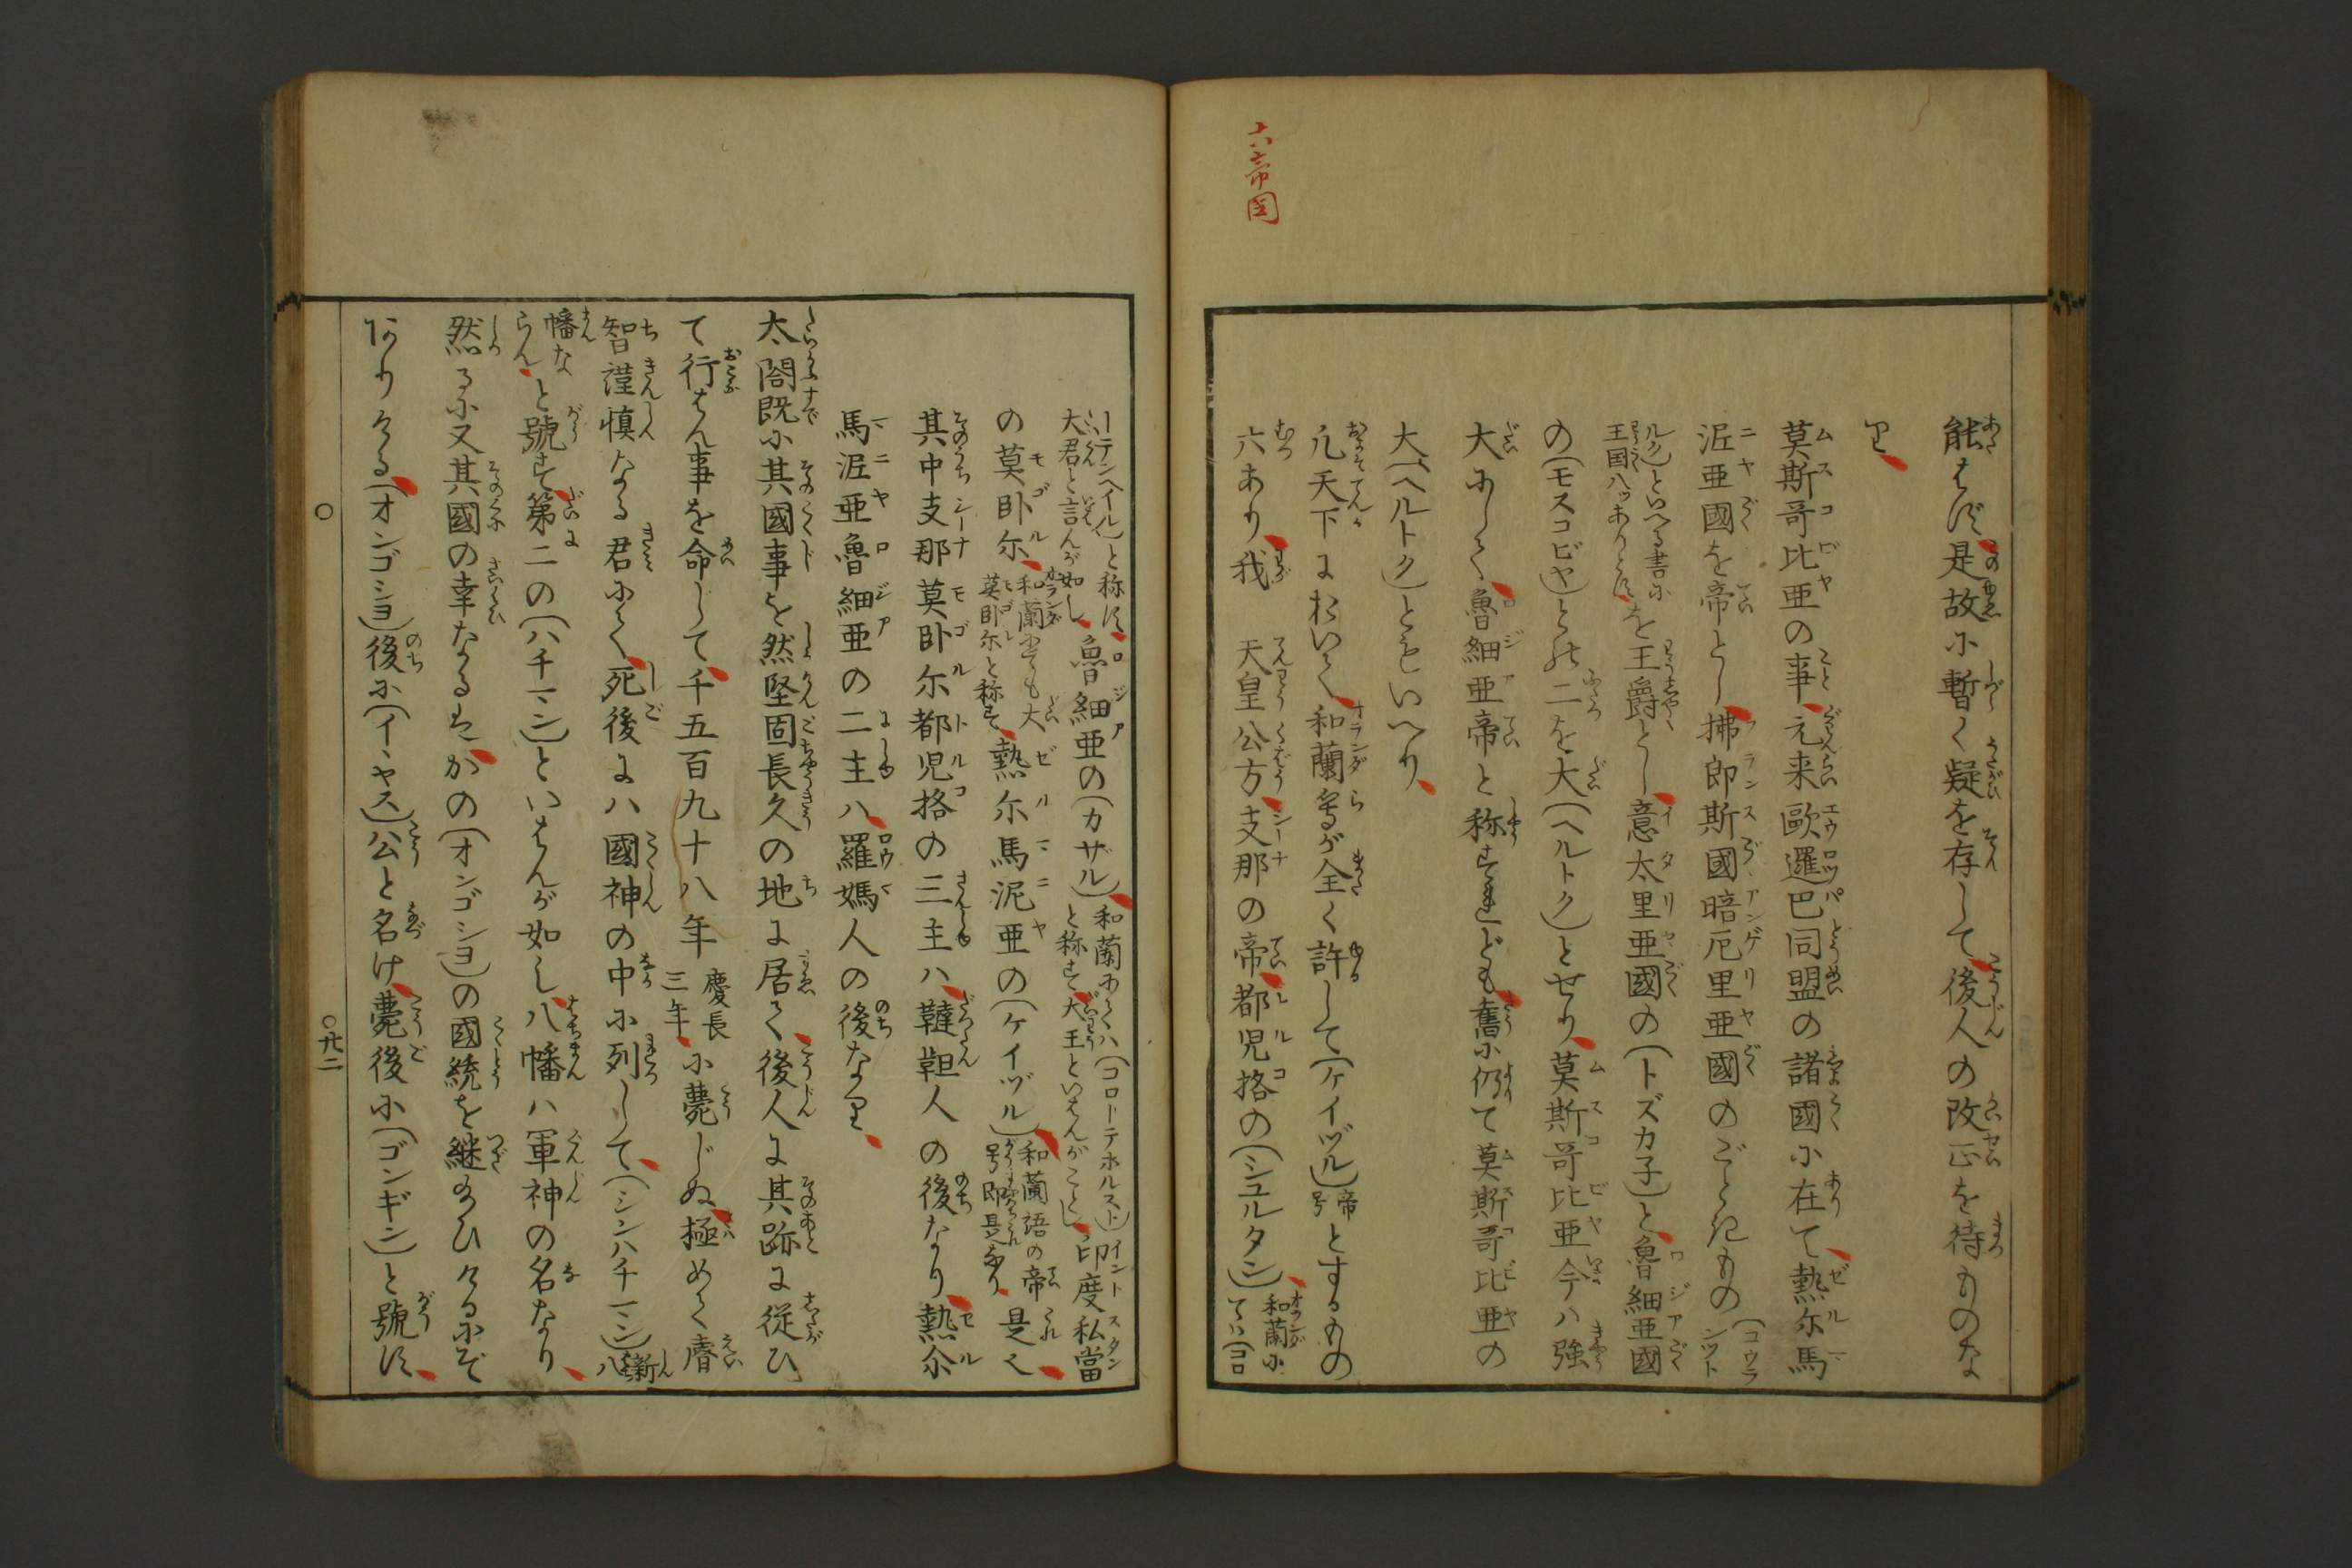 六帝国
能はず是故に暫く疑を存して後人の改正を待ものな
り
莫斯哥比亜の事元来歐邏巴同盟の諸國に在て熱尓馬
泥亜國を帝とし拂郎斯國暗厄里亜國のごときもの(コウラ
ンツト
ルク)といへる書に
王国八ツありとすを王爵とし意太里亜國の(トズカ子)と魯細亜國
の(モスコビヤ)との二を大(ヘルトク)とせり莫斯哥比亜今ハ強
大にして魯細亜帝と称すれども舊に仍て莫斯哥比亜の
大(ヘルトク)ともいへり
凡天下において和蘭等が全く許して(ケイヅル)帝号とするもの
六あり我 天皇公方支那の帝都児格の(シユルタン)和蘭に
てハ(コロ
ーテンヘイル)と称す
大君と言んが如し魯細亜の(カザル)和蘭にてハ(コローテホルスト)
と称す大王といはんがことし印度私當
の莫卧尓和蘭にても大
莫卧尓と称す熱尓馬泥亜の(ケイヅル)和蘭語の帝
号即是なり是也
其中支那莫卧尓都児格の三主ハ韃靼人の後なり熱尓
馬泥亜魯細亜の二主ハ羅媽人の後なり
太閤既に其國事を然堅固長久の地に居て後人に其跡に従ひ
て行はん事を命して千五百九十八年慶長
三年に薨じぬ極めて睿
智謹慎なる君にて死後にハ國神の中に列して(シンハチマン)新
八
幡な
らんと號す第二の(ハチマン)といはんが如し八幡ハ軍神の名なり
然るに又其國の幸なるにかの(オンゴシヨ)の國統を継給ひけるにぞ
ありける(オンゴシヨ)後に(イヽヤス)公と名け薨後に(ゴンギン)と號す
○ ○廿二